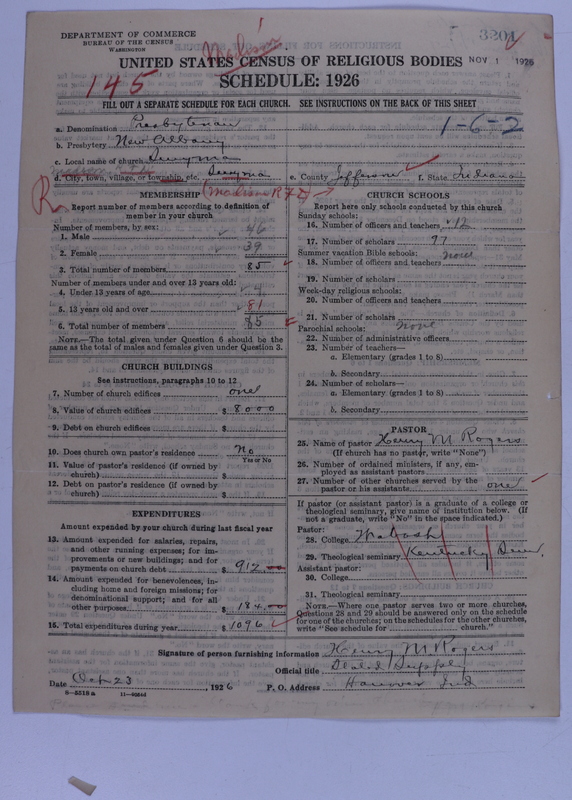 DEPARTMENT OF COMMERCE
BUREAU OF THE CENSUS
WASHINGTON
Madison
3204
NOV 1 1926
UNITED STATES CENSUS OF RELIGIOUS BODIES
SCHEDULE: 1926
145
FILL OUT A SEPARATE SCHEDULE FOR EACH CHURCH. SEE INSTRUCTIONS ON THE BACK OF THIS SHEET
a. Denomination Presbyterian
1-6-2
b. Presbytery New Albany
c. Local name of church
d. City, town, village, or township, etc. e. County Jefferson f. State Indiana
R
Madison R F D
MEMBERSHIP
Report number of members according to definition of member in your church
Number of members, by sex:
1. Male 46
2. Female 39
3. Total number of members 85
Number of members under and over 13 years old:
4. Under 13 years of age 4
5. 13 years old and over 81
6. Total number of members 85
NOTE.—The total given under Question 6 should be the same as the total of males and females given under Question 3.
CHURCH BUILDINGS
See instructions, paragraphs 10 to 12
7. Number of church edifices one
8. Value of church edifices $ 8000
9. Debt on church edifices $
10. Does church own pastor's residence? No
Yes or No
11. Value of pastor's residence (if owned by church) $
12. Debt on pastor's residence (if owned by church) $
EXPENDITURES
Amount expended by your church during last fiscal year
13. Amount expended for salaries, repairs, and other running expenses; for improvements or new buildings; and for payments on church debt $ 912.00
14. Amount expended for benevolences, including home and foreign missions; for denominational support; and for all other purposes $ 184.00
15. Total expenditures during year $ 1096
CHURCH SCHOOLS
Report here only schools conducted by this church
Sunday schools:
16. Number of officers and teachers 12
17. Number of scholars 97
Summer vacation Bible schools: none
18. Number of officers and teachers
19. Number of scholars
Week-day religious schools:
20. Number of officers and teachers
21. Number of scholars
Parochial schools: none
22. Number of administrative officers
23. Number of teachers—
a. Elementary (grades 1 to 8)
b. Secondary
24. Number of scholars—
a. Elementary (grades 1 to 8)
b. Secondary
PASTOR
25. Name of pastor Henry M Rogers
(If church has no pastor, write "None")
26. Number of ordained ministers, if any, employed as assistant pastors
27. Number of other churches served by the pastor or his assistants one
If pastor (or assistant pastor) is a graduate of a college or theological seminary, give name of institution below. (If not a graduate, write "No" in the space indicated.)
Pastor:
28. College Wabash
29. Theological seminary Kentucky Sem.
Assistant pastor:
30. College
31. Theological seminary
NOTE.—Where one pastor serves two or more churches, Questions 28 and 29 should be answered only on the schedule for one of the churches; on the schedules for the other churches, write "See schedule for church."
Signature of person furnishing information Henry M Rogers
Official title Stated Supply
Date Oct 23, 1926 P. O. Address Hanover Ind
8—5518 a